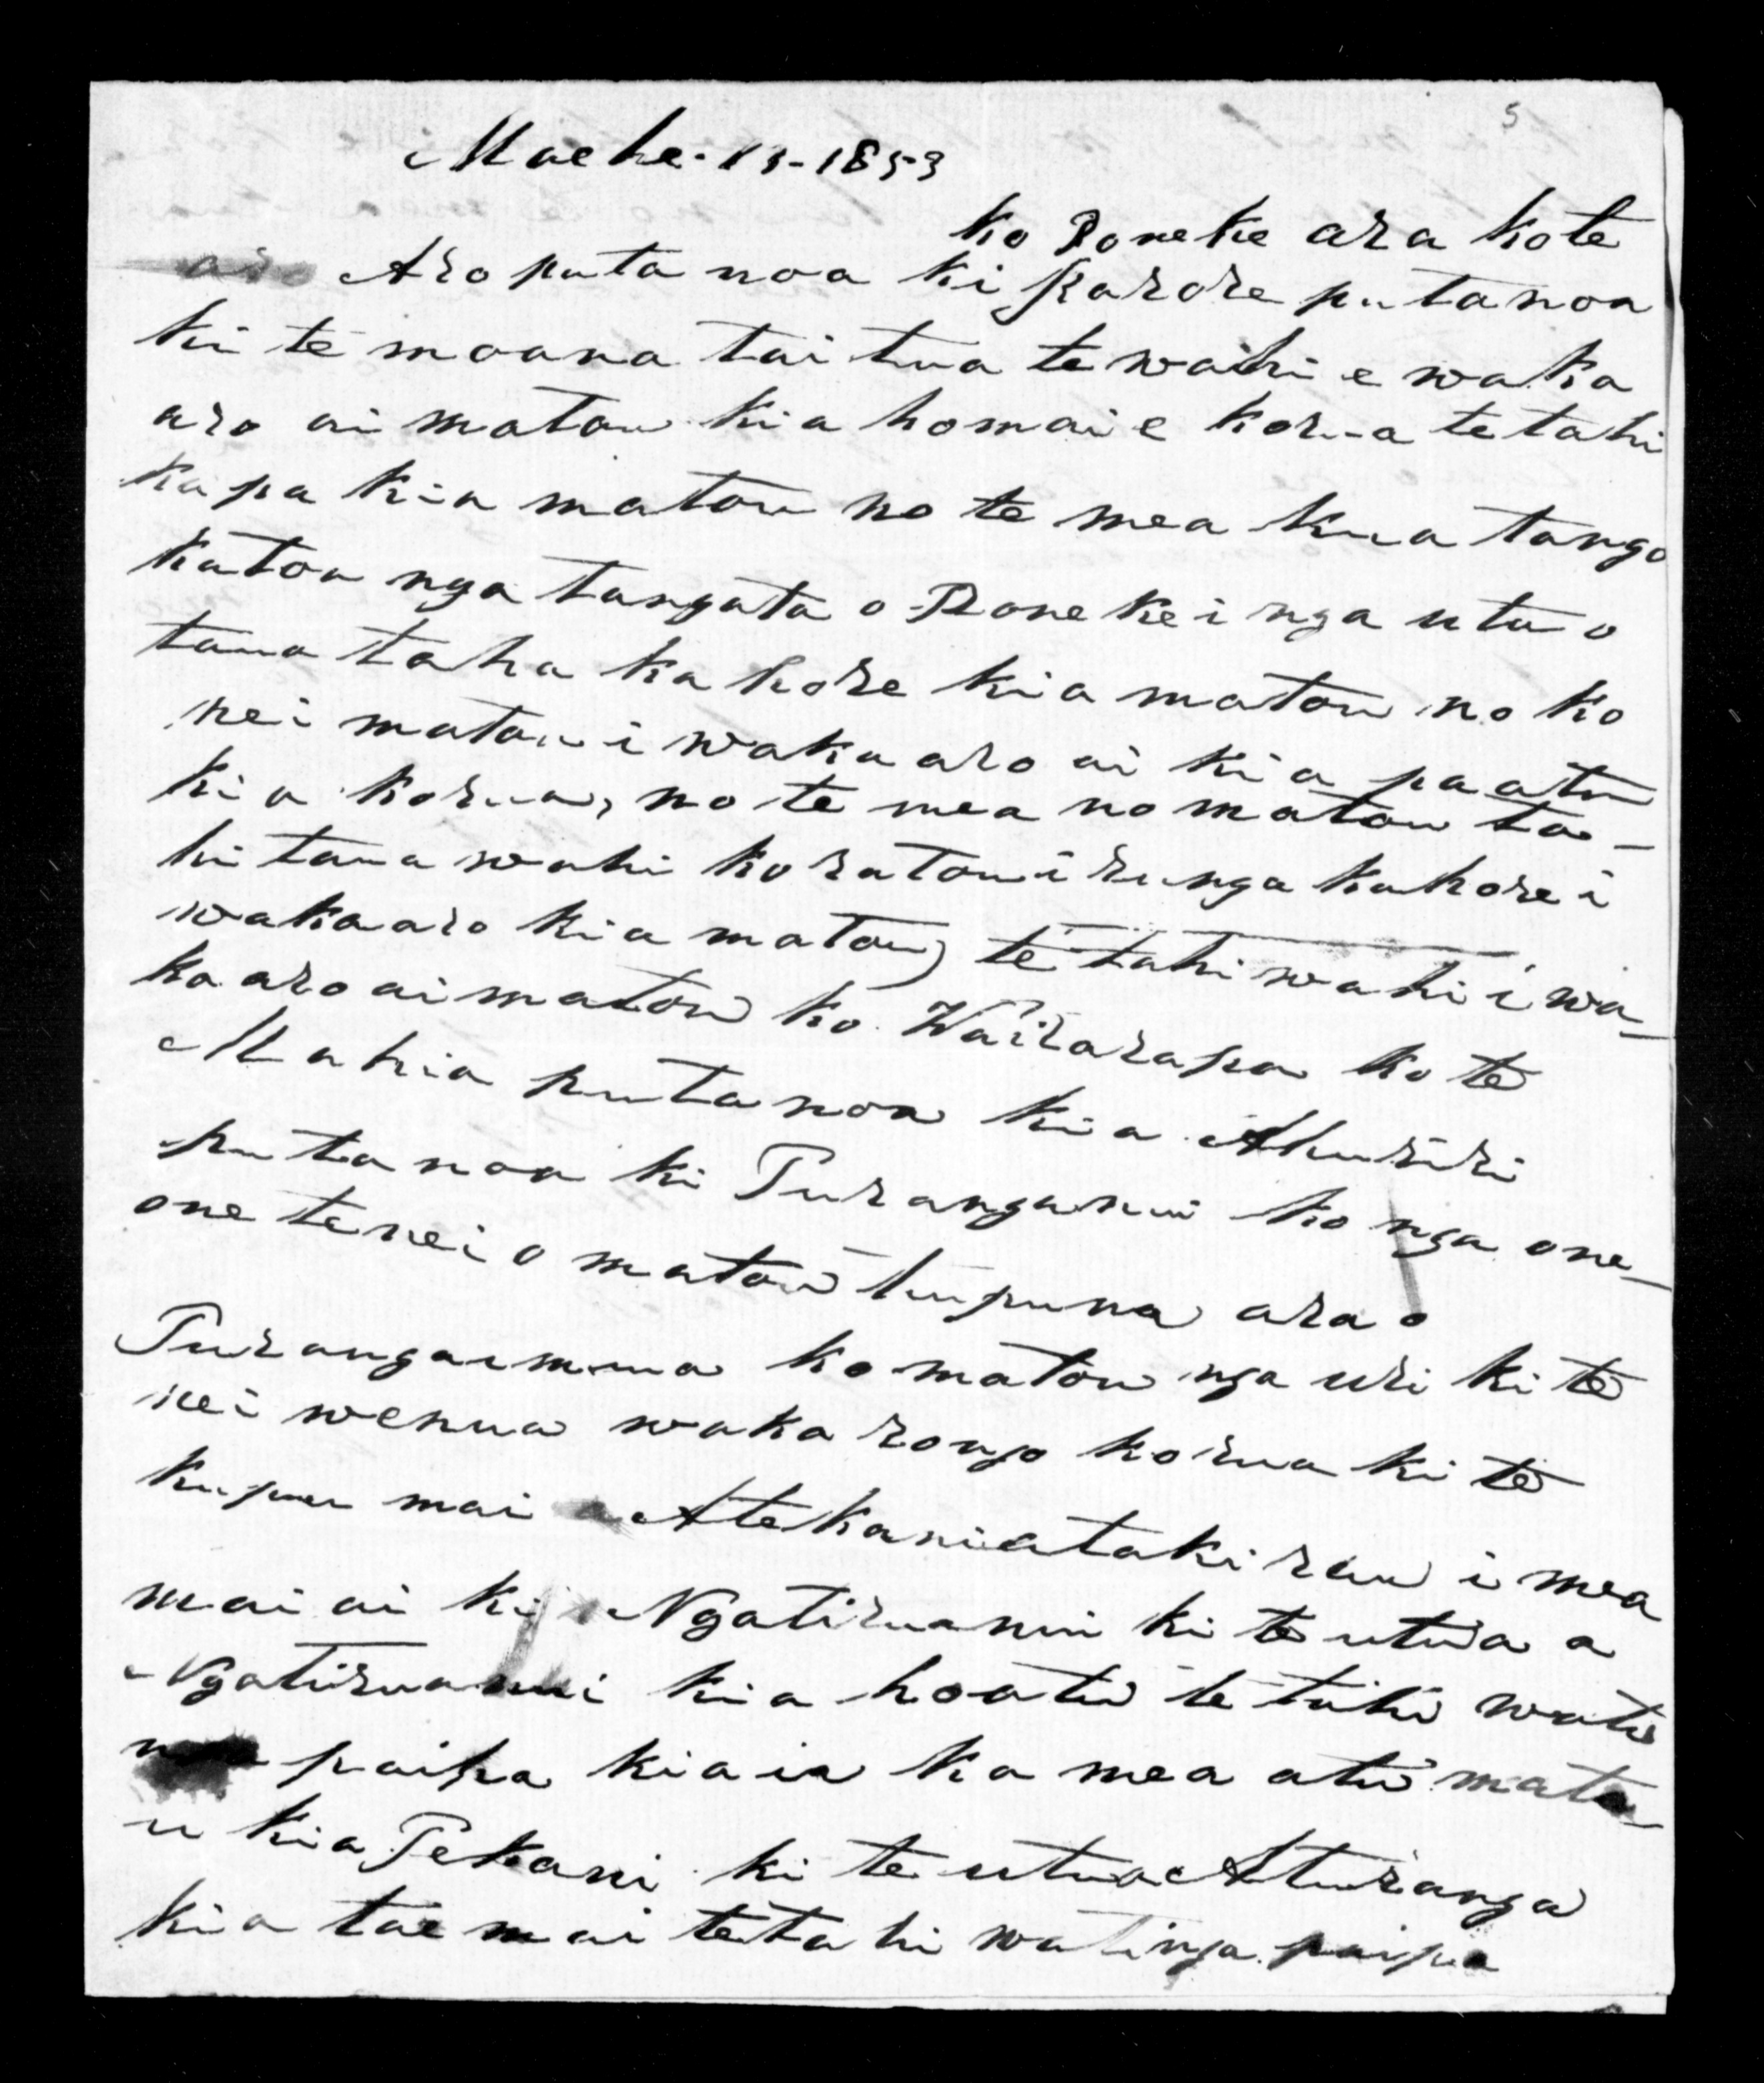 5
Maehe. 13-1853
Ko Poneke ara Kote
aro Aro puta noa ki Karore puta noa
ki te moana tai tua te wahi e waka
aro ai matou kia homai e korua tetahi
kapa kia matou no te mea kua tango
katoa nga tangata o Poneke i nga utu o
taua taha kahore kia matou no ko
nei matou i wakaaro ai kia pa atu
kia korua, no te mea no matou ta-
hi taua wahi ko ratou i runga kahore i
wakaaro kia matou) tetahi wahi i wa-
kaaro ai matou ko Wairarapa ko te
Mahia puta noa kia Ahuriri
puta noa ki Turanganui ko nga one-
one tenei o matou tupuna ara o
Turangaimua ko matou nga uri ki te
nei wenua wakarongo korua ki te
kupu mai a Atekaniatakirau i mea
mai ai ki Ngatiruanui ki te utua a
Ngatiruanui kia hoatu tetahi wati
paipa kia ia ka mea atu mato-
u kia Tekani ki te utua Aturanga
kia tae mai tetahi watinga paipa